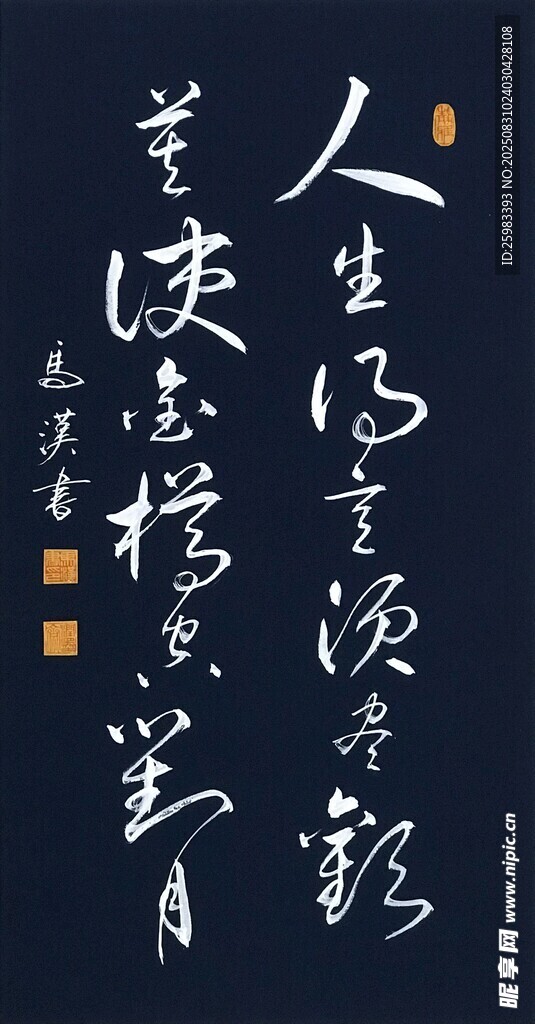 人生得意須盡歡
莫使金樽空對月
馬漢書
ID:25983393 NO:20250831024030428108
昵享网 www.nipic.cn